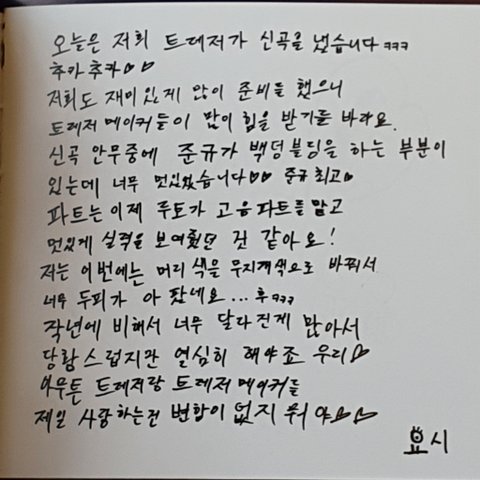 오늘은 저희 트레저가 신곡을 냈습니다ㅋㅋㅋ
추카추카♡♡
저희도 재미있게 많이 준비를 했으니
트레저 메이커들이 많이 힘을 받기를 바라요.
신곡 안무중에 준규가 백덤블딩을 하는 부분이
있는데 너무 멋있었습니다♡♡ 준규 최고♡
파트는 이제 루토가 고음파트를 맡고
멋있게 실력을 보여줬던 것 같아요!
저는 이번에는 머리 색을 무지개색으로 바꿔서
너무 두피가 아팠네요...후ㅋㅋㅋ
작년에 비해서 너무 달라진게 많아서
당황스럽지만 열심히 해야죠 우리♡
아무튼 트레저랑 트레저 메이커들
제일 사랑하는건 변함이 없지 뭐야♡♡
요시